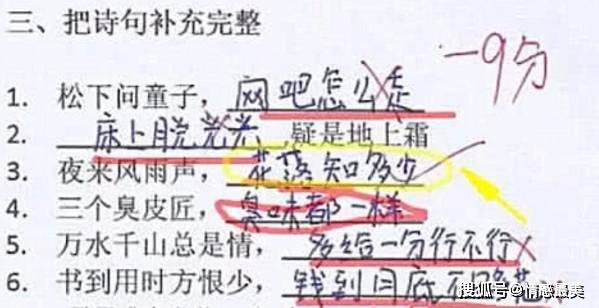 三、把诗句补充完整
-9分
1. 松下问童子，网吧怎么走
2. 床上脱光光，疑是地上霜
3. 夜来风雨声，花落知多少
4. 三个臭皮匠，臭味都一样
5. 万水千山总是情，多给一分行不行
6. 书到用时方恨少，钱到月底不够花
搜狐号@情感最美